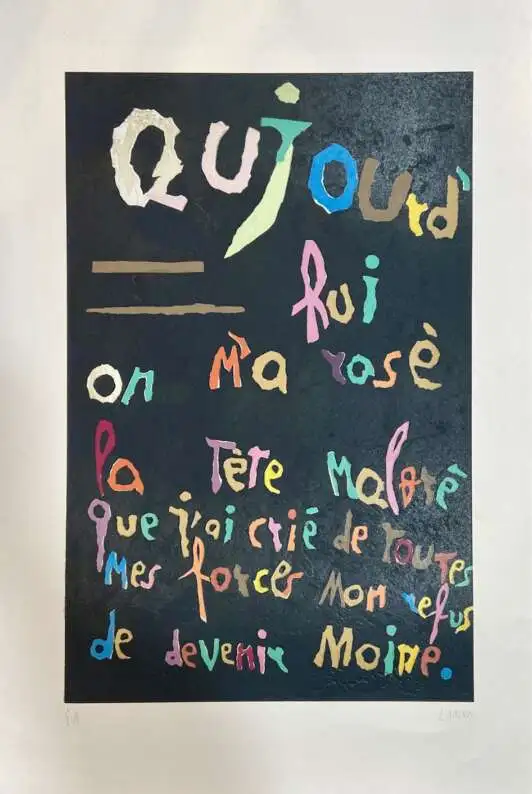 Qujourd'
hui
on m'a rasé
la Tête Malgré
que j'ai crié de toutes
Mes forces Mon refus
de devenir Moine.